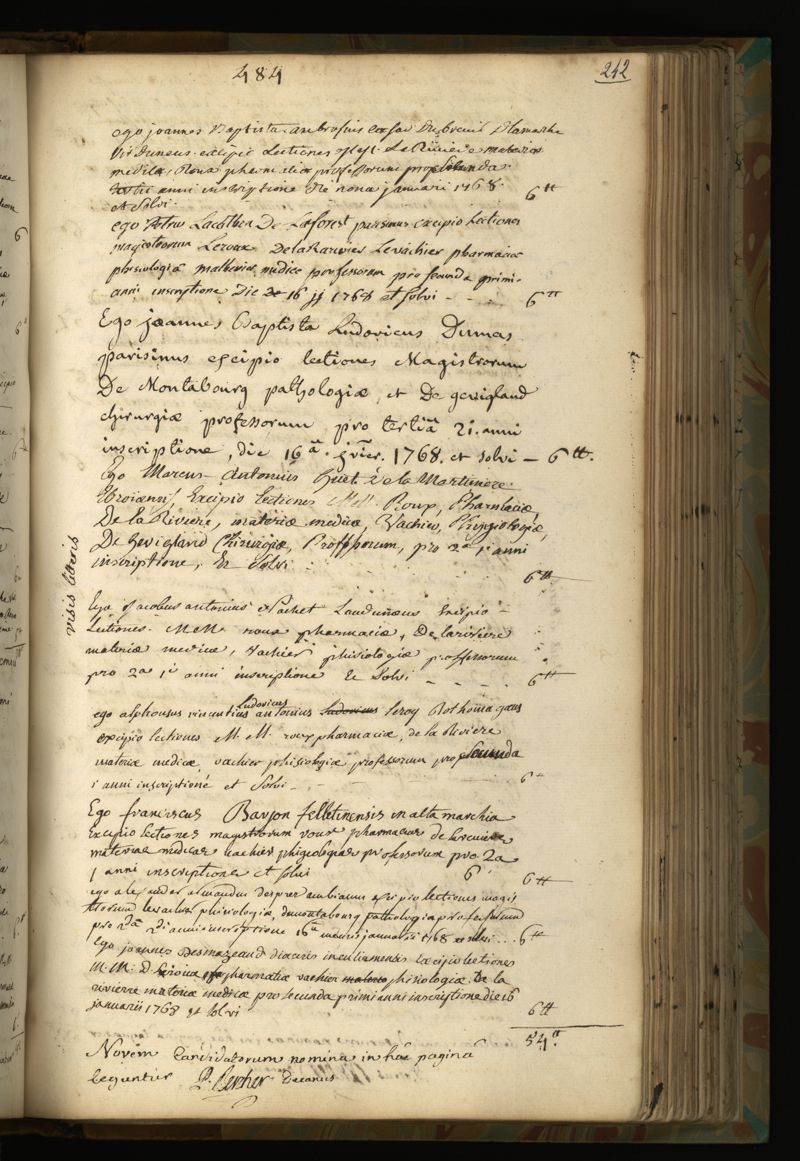 484
242
ego joannes Baptista ambrosius Dubreuil
excipio Lectiones
professorum pro secunda
anni inscriptione die nona januarii 1768.
et Solvi. 6 tt
ego Petrus De Laforest parisinus excipio Lectiones
magistrorum Leroux Delarivier Levachier pharmaciæ
physiologiæ materiæ medicæ professorum pro secunda primi
anni inscriptione Die 16 jj 1768 et solvi - - - 6 tt
Ego joannes Baptista Ludovicus Dumas
parisinus excipio lectiones Magistrorum
De Montabourg pathologiæ, et De gevigland
chirurgiæ professorum pro tertiâ 2i. anni
inscriptione, die 16a. jvier. 1768. et solvi - 6 tt.
Ego Marcus-Antonius huet de la Martiniere
Ebroicensis, Excipio lectiones MM. Roux, Pharmaciæ,
De la Riviere, materiæ medicæ, Vachier, Physiologiæ,
De Gevigland Chirurgiæ, Professorum, pro 2a 1i anni
inscriptione, Et Solvi 6 tt
visis litteris
Ego Jacobus antonius Pachet Laudunæus Excipio
Lectiones. M.M. roux pharmaciæ, De lariviere
materiæ medicæ, vachier phisiologiæ professorum
pro 2a 1i anni inscriptione Et Solvi - - - 6 tt
ego alphonsus vincentius Ludovicus antonius Ludovicus Leroy Rothomagæus
excipio lectiones M. M. roux pharmaciæ, de la Riviere
materiæ medicæ, vachier phisiologiæ professorum pro secunda
1 anni inscriptione et Solvi - - 6
Ego franciscus Baujon felletinensis in alta marchia
Excipio lectiones magistrorum roux pharmaciæ de lariviere
materiæ medicæ vachier phisiologiæ professorum pro 2a
1 anni inscriptione et solvi 6 tt
ego alexander armandus desprez ambianus excipio lectiones magis
trorum levacher phisiologiæ, demontabourg pathologiæ professorum
pro 2da 2di anni inscriptione 16a mensis januarii 1768 et solvi ... 6 tt
Ego joannes Desmazeaud diæcesis inculismensis excipio lectiones
M. M. D Leroux pharmaciæ vachier phisiologiæ De la
rivierre materiæ medicæ pro secunda primi anni inscriptione die 16
januarii 1768 et solvi 6 tt
54 tt.
Novem Candidatorum nomina in hac pagina
leguntur P. Bercher Decanus